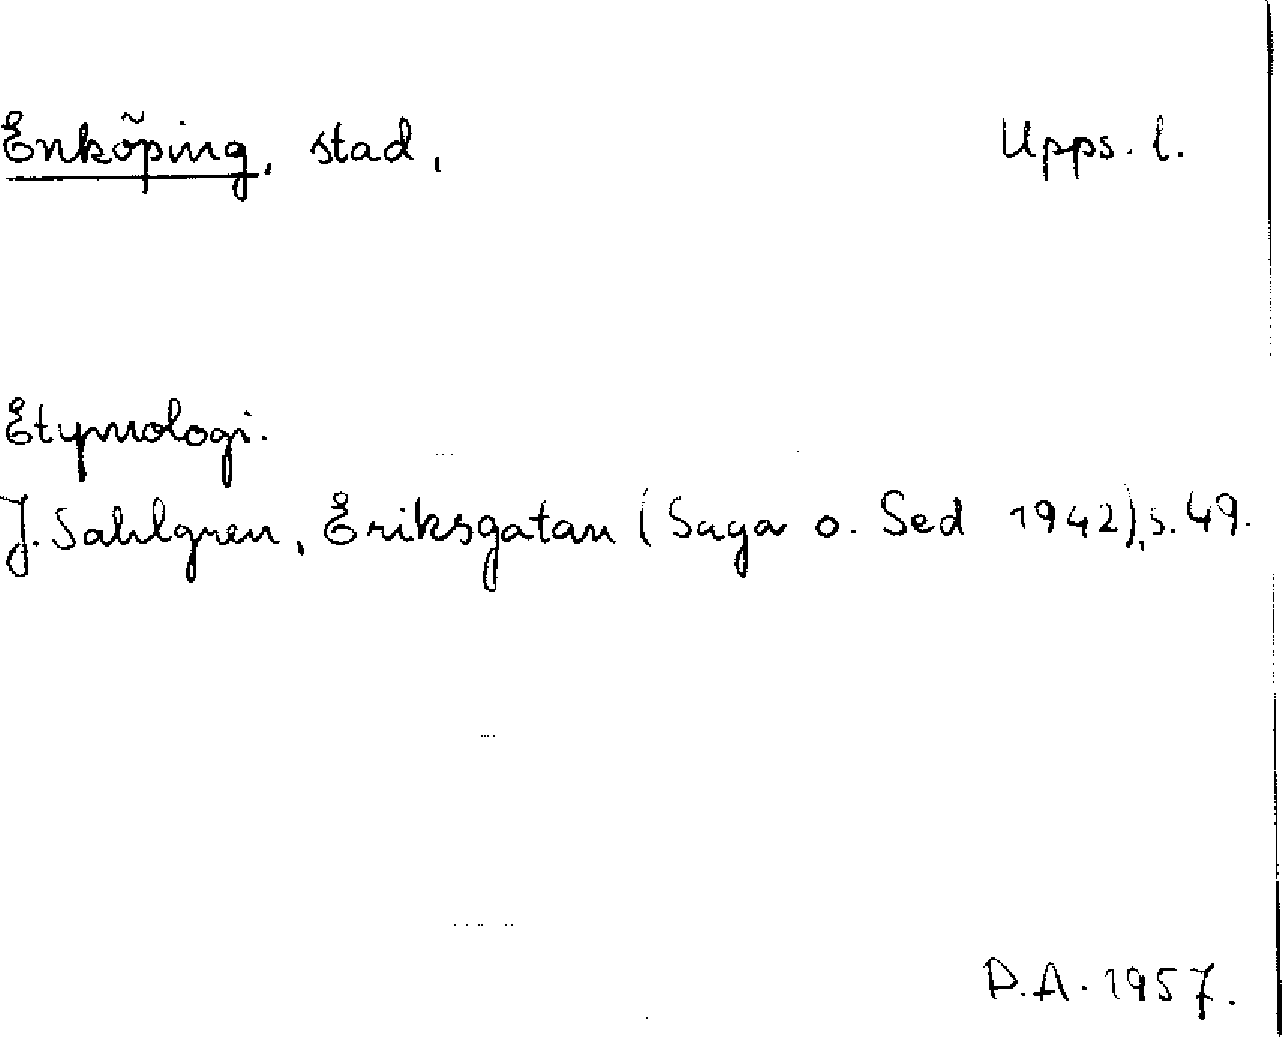 Enköping, stad, Upps. l.
Etymologi.
J. Sahlgren, Eriksgatan (Saga o. Sed 1942), s. 49.
D.A. 1957.